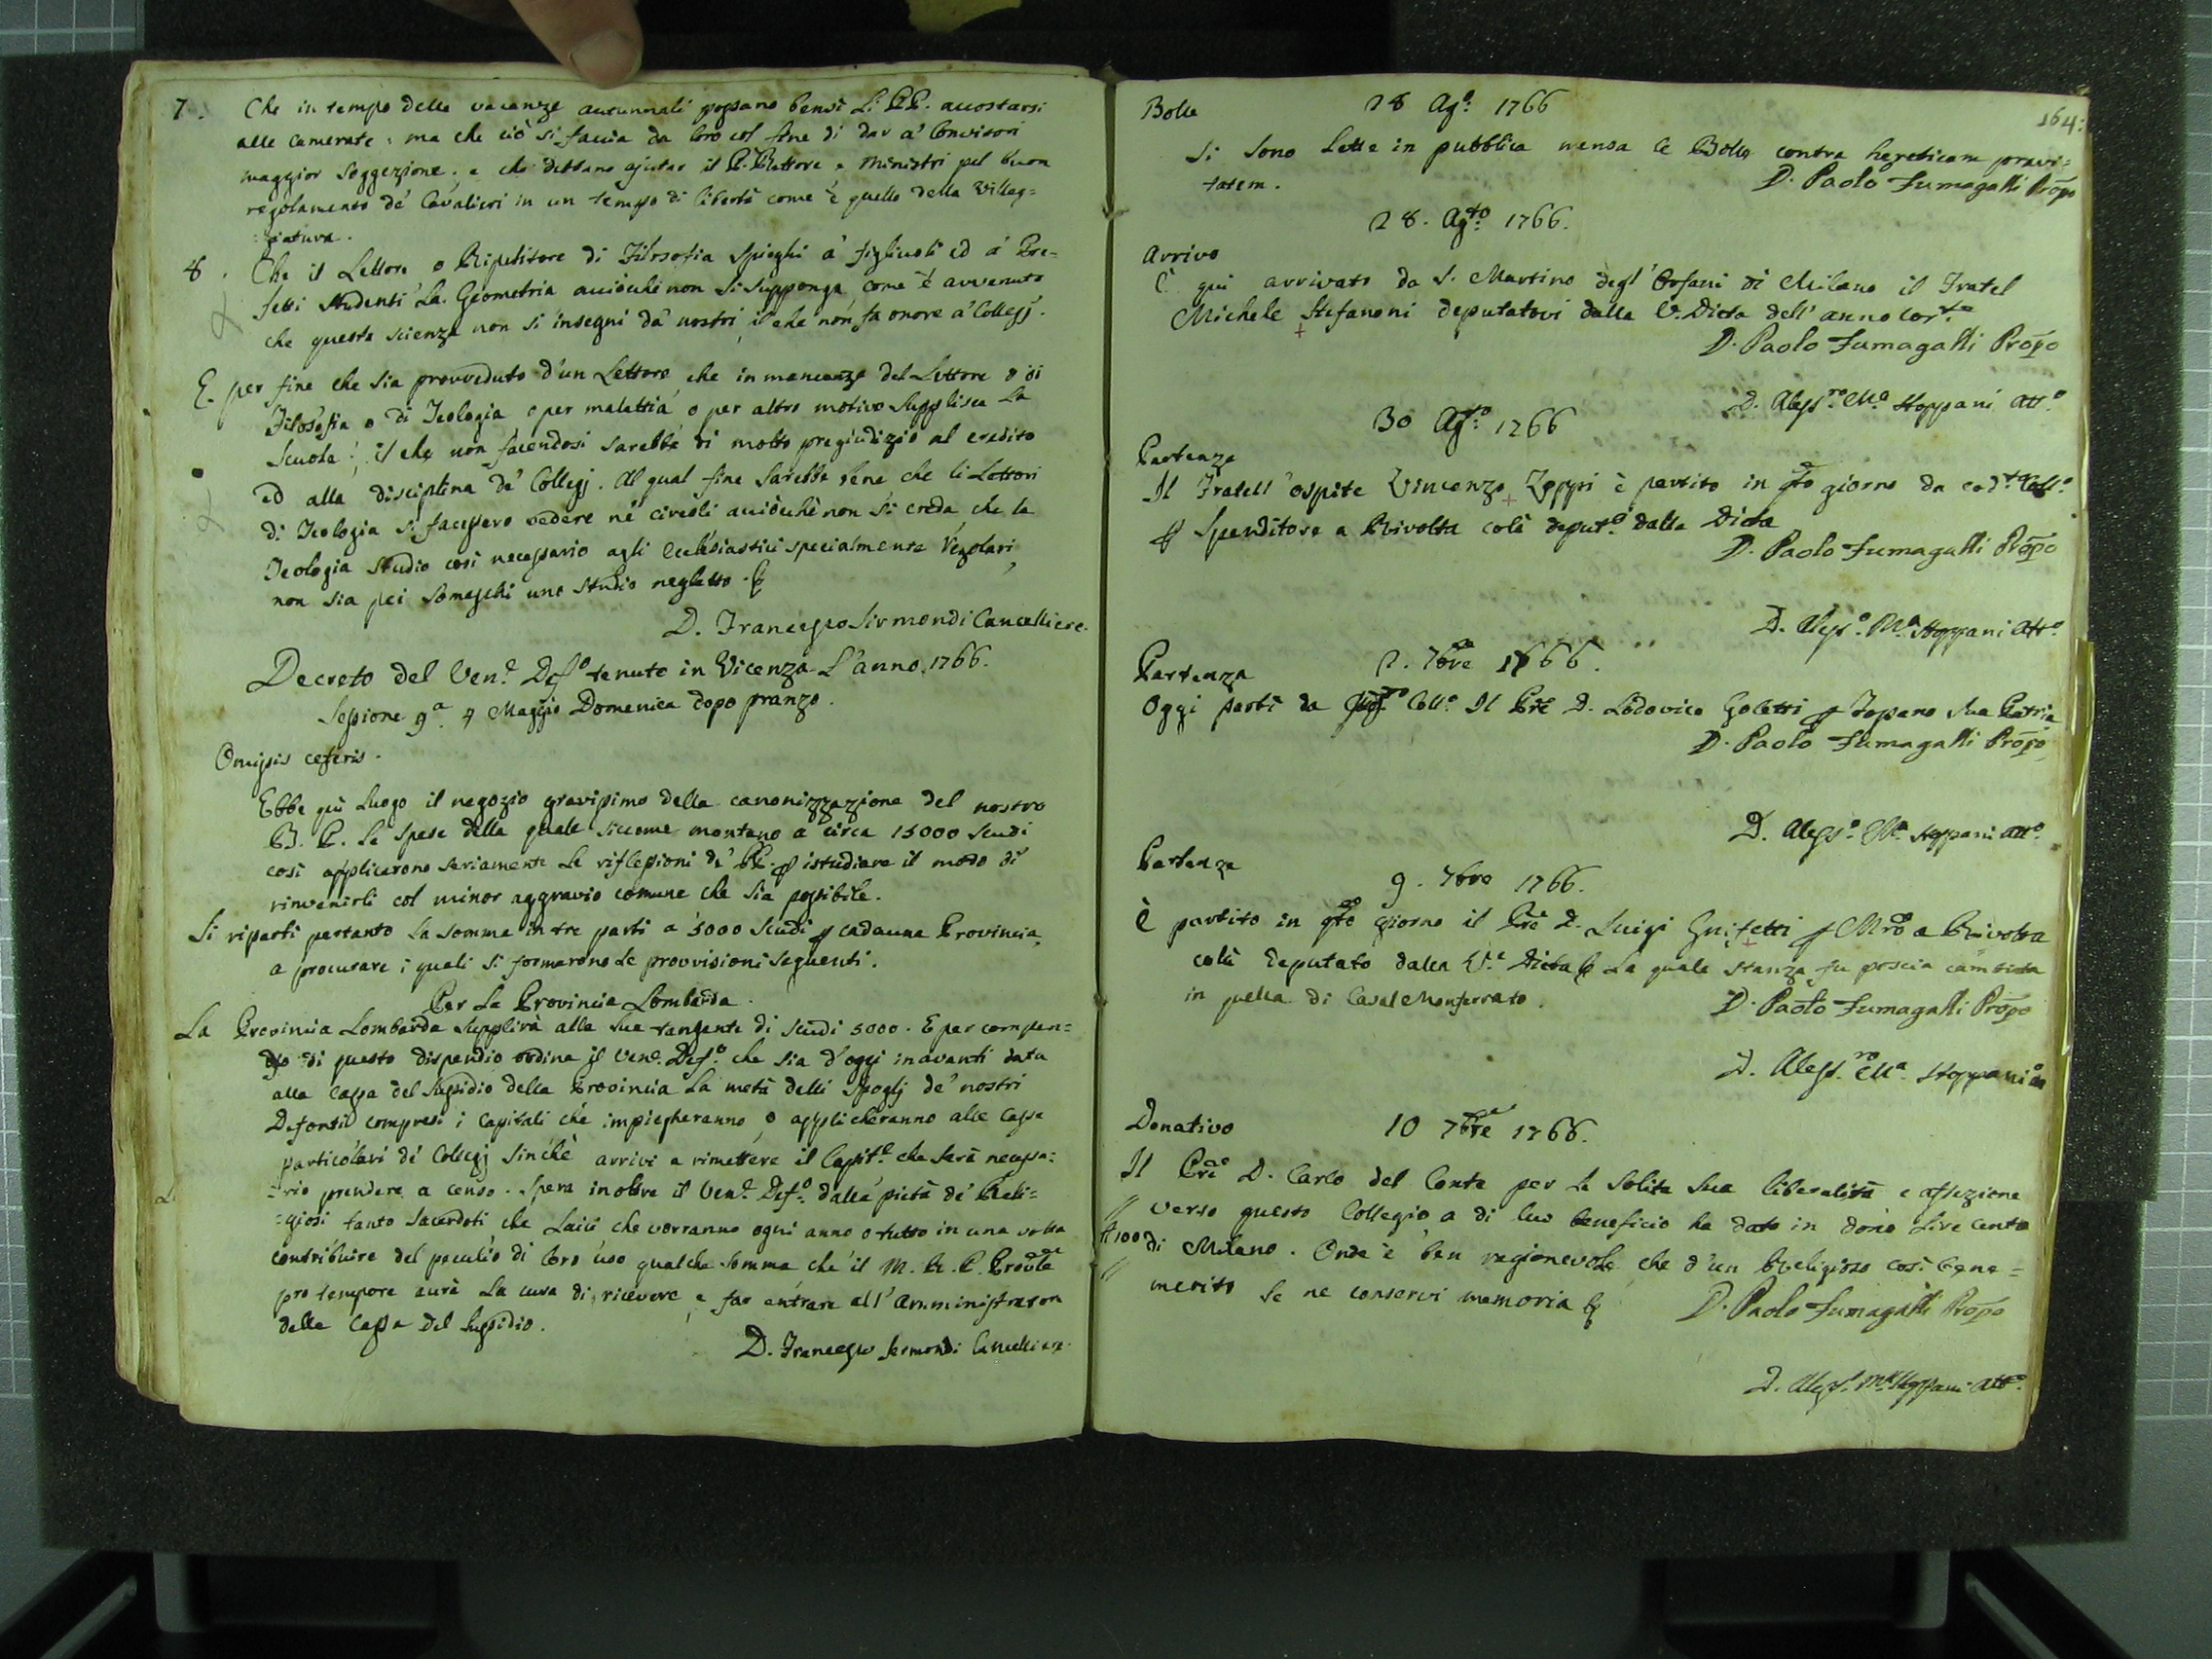 7. Che in tempo delle vacanze autunnali possano bensì li PP. accostarsi
alle camerate: ma che ciò si faccia da loro col fine di dar a' Convittori
maggior soggezione: e che debbano ajutar il P. Rettore e Ministri pel buon
regolamento de' Cavalieri in un tempo di libertà come è quello della Villeg=
=giatura.
8. Che il Lettore o Ripetitore di Filosofia spieghi a' figliuoli ed a' Pre=
fetti studenti la Geometria acciochè non si supponga come è avvenuto
che questa scienza non si insegni da' nostri, il che non fa onore a' Collegj.
E per fine che sia provveduto d'un Lettore che in mancanza del Lettore o di
Filosofia o di Teologia o per malattia o per altro motivo supplisca la
Scuola; il che non facendosi sarebbe di molto pregiudizio al credito
ed alla disciplina de' Collegj. Al qual fine sarebbe bene che li Lettori
di Teologia si facessero vedere ne' circoli acciochè non si creda che la
Teologia studio così necessario agli Ecclesiastici specialmente regolari,
non sia pei Somaschi uno studio negletto.
D. Francesco Sirmondi Cancelliere.
Decreto del Ven.e Def.o tenuto in Vicenza l'anno 1766.
Sessione 9.a 4 Maggio Domenica dopo pranzo.
Omissis ceteris.
Ebbe quì luogo il negozio gravissimo della canonizzazione del nostro
B. P. le spese della quale siccome montano a circa 15000 scudi
così applicarono seriamente le riflessioni de' PP. p istudiare il modo di
rinvenirli col minor aggravio comune che sia possibile.
Si ripartì pertanto la somma in tre parti a 5000 scudi p cadauna Provincia,
a procurare i quali si formarono le provvisioni seguenti.
Per la Provincia Lombarda.
La Provincia Lombarda supplirà alla sua tangente di scudi 5000. E per compen=
so di questo dispendio ordina il Ven.e Def.o che sia d'oggi inavanti data
alla cassa del sussidio della Provincia la metà delli Spoglj de' nostri
Defonti compresi i capitali che impiegheranno, o applicheranno alle casse
particolari de' Collegj sinchè arrivi a rimettere il Capit.e che sarà necessa=
=rio prendere a censo. Spera inoltre il Ven.e Def.o dalla pietà de' Reli=
=giosi tanto Sacerdoti che Laici che vorranno ogni anno o tutto in una volta
contribuire del peculio di loro uso qualche somma che il M. R. P. Provle
pro tempore avrà la cura di ricevere e far entrare all'Amministrator
della Cassa del Sussidio.
D. Francesco Sermondi Cancelliere.
164:
Bolle 28 Ag.o 1766
Si sono lette in pubblica mensa le Bolle contra hereticam pravi=
tatem. D. Paolo Fumagalli Propo
28. Ag.to 1766.
Arrivo
È quì arrivato da S. Martino degl'Orfani di Milano il Fratel
Michele Stefanoni deputatovi dalla V. Dieta dell'anno cor.te
D. Paolo Fumagalli Propo
D. Aless.ro M.a Stoppani Att.o
30 Ag.to 1766
Partenza
Il Fratell'ospite Vincenzo Zoppi è partito in qto giorno da cod.to Coll.o
p Spenditore a Rivolta colà deput.o dalla Dieta
D. Paolo Fumagalli Propo
D. Aless.o M.a Stoppani Att.o
Partenza 2. 7bre 1766.
Oggi partì da Coll.o Il Pre D. Lodovico Goletti p sua Patria
D. Paolo Fumagalli Propo
D. Aless.o M.a Stoppani Att.o
Partenza
9. 7bre 1766.
È partito in qto giorno il Pre D. Luigi Gnifetti p Mro a Rivolta
colà deputato dalla V.e Dieta la quale stanza fu poscia cambiata
in quella di Casal Monferrato. D. Paolo Fumagalli Propo
D. Aless.ro M.a Stoppani
Donativo 10 7bre 1766.
Il Pre D. Carlo del Conte per la solita sua liberalità e affezione
verso questo Collegio a di lui beneficio ha dato in dono Lire cento
100 di Milano. Onde è ben ragionevole che d'un Religioso così bene=
merito se ne conservi memoria D. Paolo Fumagalli Propo
D. Aless.o M.a Stoppani Att.o